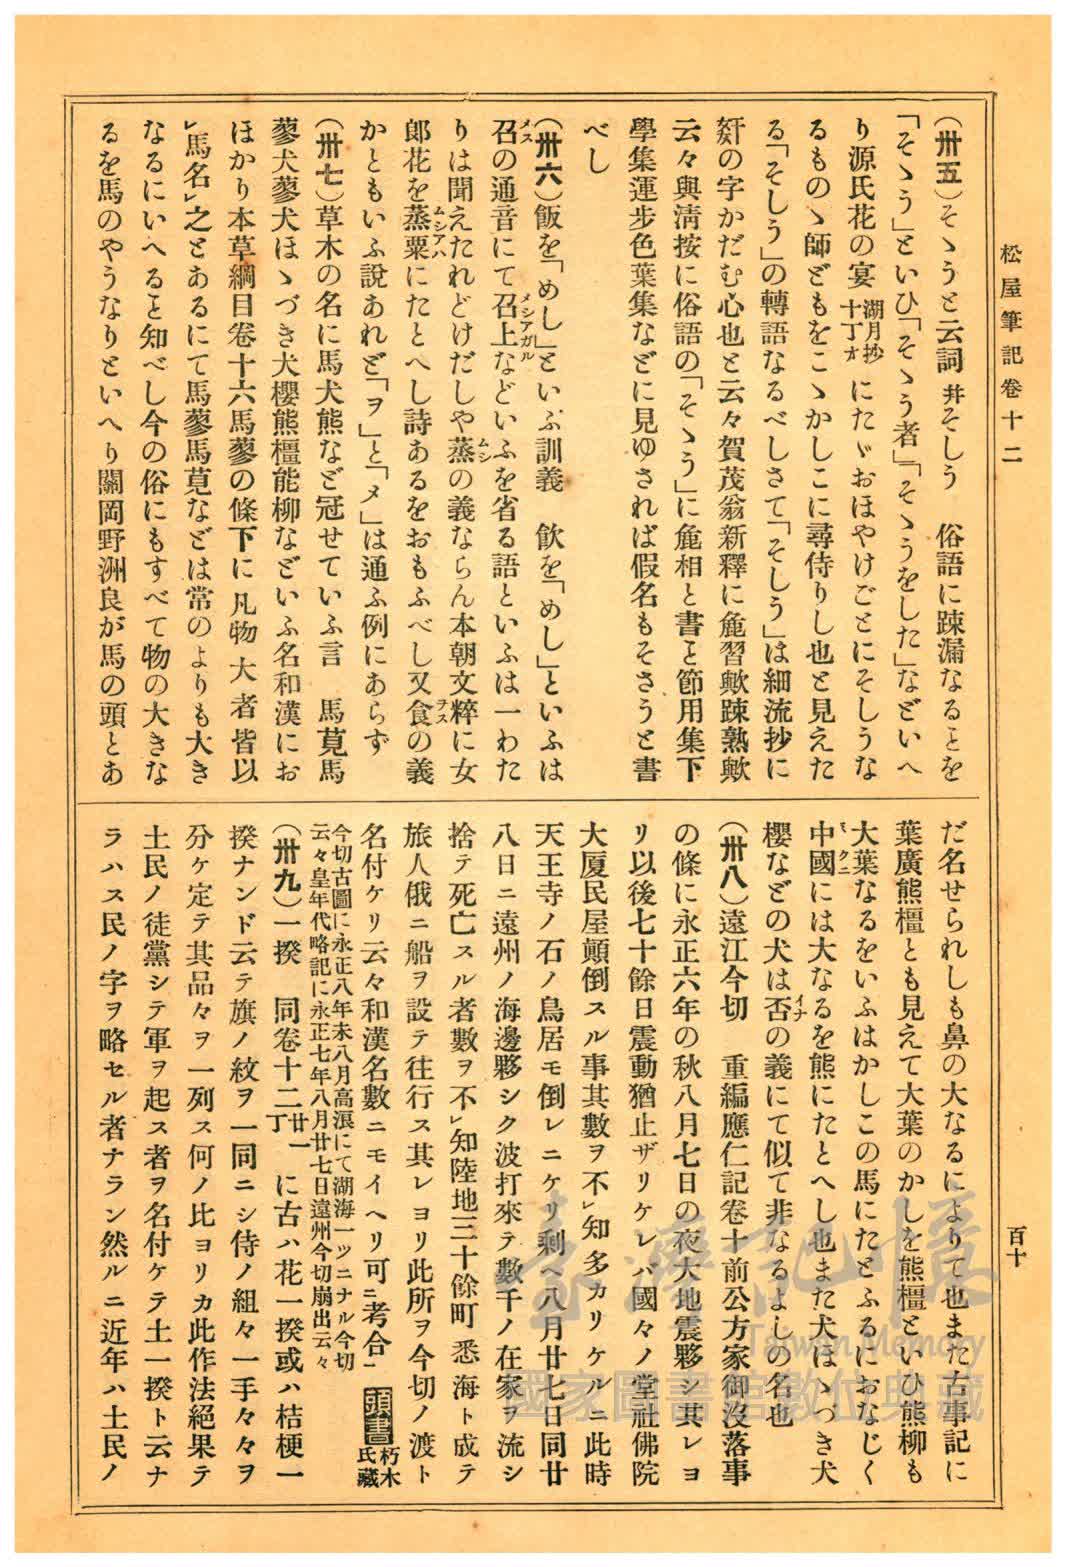 松屋筆記卷十二
百十
（卅五）そゝうと云詞 幷そしう　俗語に踈漏なることを
「そゝう」といひ「そゝう者」「そゝうをした」などいへ
り源氏花の宴 湖月抄十丁オ にたゞおほやけごとにそしうな
るものゝ師どもをこゝかしこに尋侍りし也と見えた
る「そしう」の轉語なるべしさて「そしう」は細流抄に
姧の字かだむ心也と云々賀茂翁新釋に麁習歟踈熟歟
云々與淸按に俗語の「そゝう」に麁相と書こと節用集下
學集運步色葉集などに見ゆされば假名もそさうと書
べし
（卅六）飯を「めし」といふ訓義　飮を「めし」といふは
召メスの通音にて召上メシアガルなどいふを省る語といふは一わた
りは聞えたれどけだしや蒸ムシの義ならん本朝文粹に女
郎花を蒸粟ムシアハにたとへし詩あるをおもふべし又食ヲスの義
かともいふ說あれど「ヲ」と「メ」は通ふ例にあらず
（卅七）草木の名に馬犬熊など冠せていふ言　馬莧馬
蓼犬蓼犬ほゝづき犬櫻熊橿能柳などいふ名和漢にお
ほかり本草綱目卷十六馬蓼の條下に凡物大者皆以
レ馬名レ之とあるにて馬蓼馬莧などは常のよりも大き
なるにいへること知べし今の俗にもすべて物の大きな
るを馬のやうなりといへり關岡野洲良が馬の頭とあ
だ名せられしも鼻の大なるによりて也また古事記に
葉廣熊橿とも見えて大葉のかしを熊橿といひ熊柳も
大葉なるをいふはかしこの馬にたとふるにおなじく
中國ミクニには大なるを熊にたとへし也また犬ほゝづき犬
櫻などの犬は否イナの義にて似て非なるよしの名也
（卅八）遠江今切　重編應仁記卷十前公方家御沒落事
の條に永正六年の秋八月七日の夜大地震夥シ其レヨ
リ以後七十餘日震動猶止ザリケレバ國々ノ堂社佛院
大厦民屋顚倒スル事其數ヲ不レ知多カリケルニ此時
天王寺ノ石ノ鳥居モ倒レニケリ剩ヘ八月廿七日同廿
八日ニ遠州ノ海邊夥シク波打來テ數千ノ在家ヲ流シ
捨テ死亡スル者數ヲ不レ知陸地三十餘町悉海ト成テ
旅人俄ニ船ヲ設テ往行ス其レヨリ此所ヲ今切ノ渡ト
名付ケリ云々和漢名數ニモイヘリ可ニ考合一 頭書 朽木氏藏
今切古圖に永正八年未八月高浪にて湖海一ツニナル今切
云々皇年代略記に永正七年八月廿七日遠州今切崩出云々
（卅九）一揆　同卷十二 廿一丁 に古ハ花一揆或ハ桔梗一
揆ナンド云テ旗ノ紋ヲ一同ニシ侍ノ組々一手々々ヲ
分ケ定テ其品々ヲ一列ス何ノ比ヨリカ此作法絕果テ
土民ノ徒黨シテ軍ヲ起ス者ヲ名付ケテ土一揆ト云ナ
ラハス民ノ字ヲ略セル者ナラン然ルニ近年ハ土民ノ
臺灣記憶
Taiwan Memory
國家圖書館數位典藏